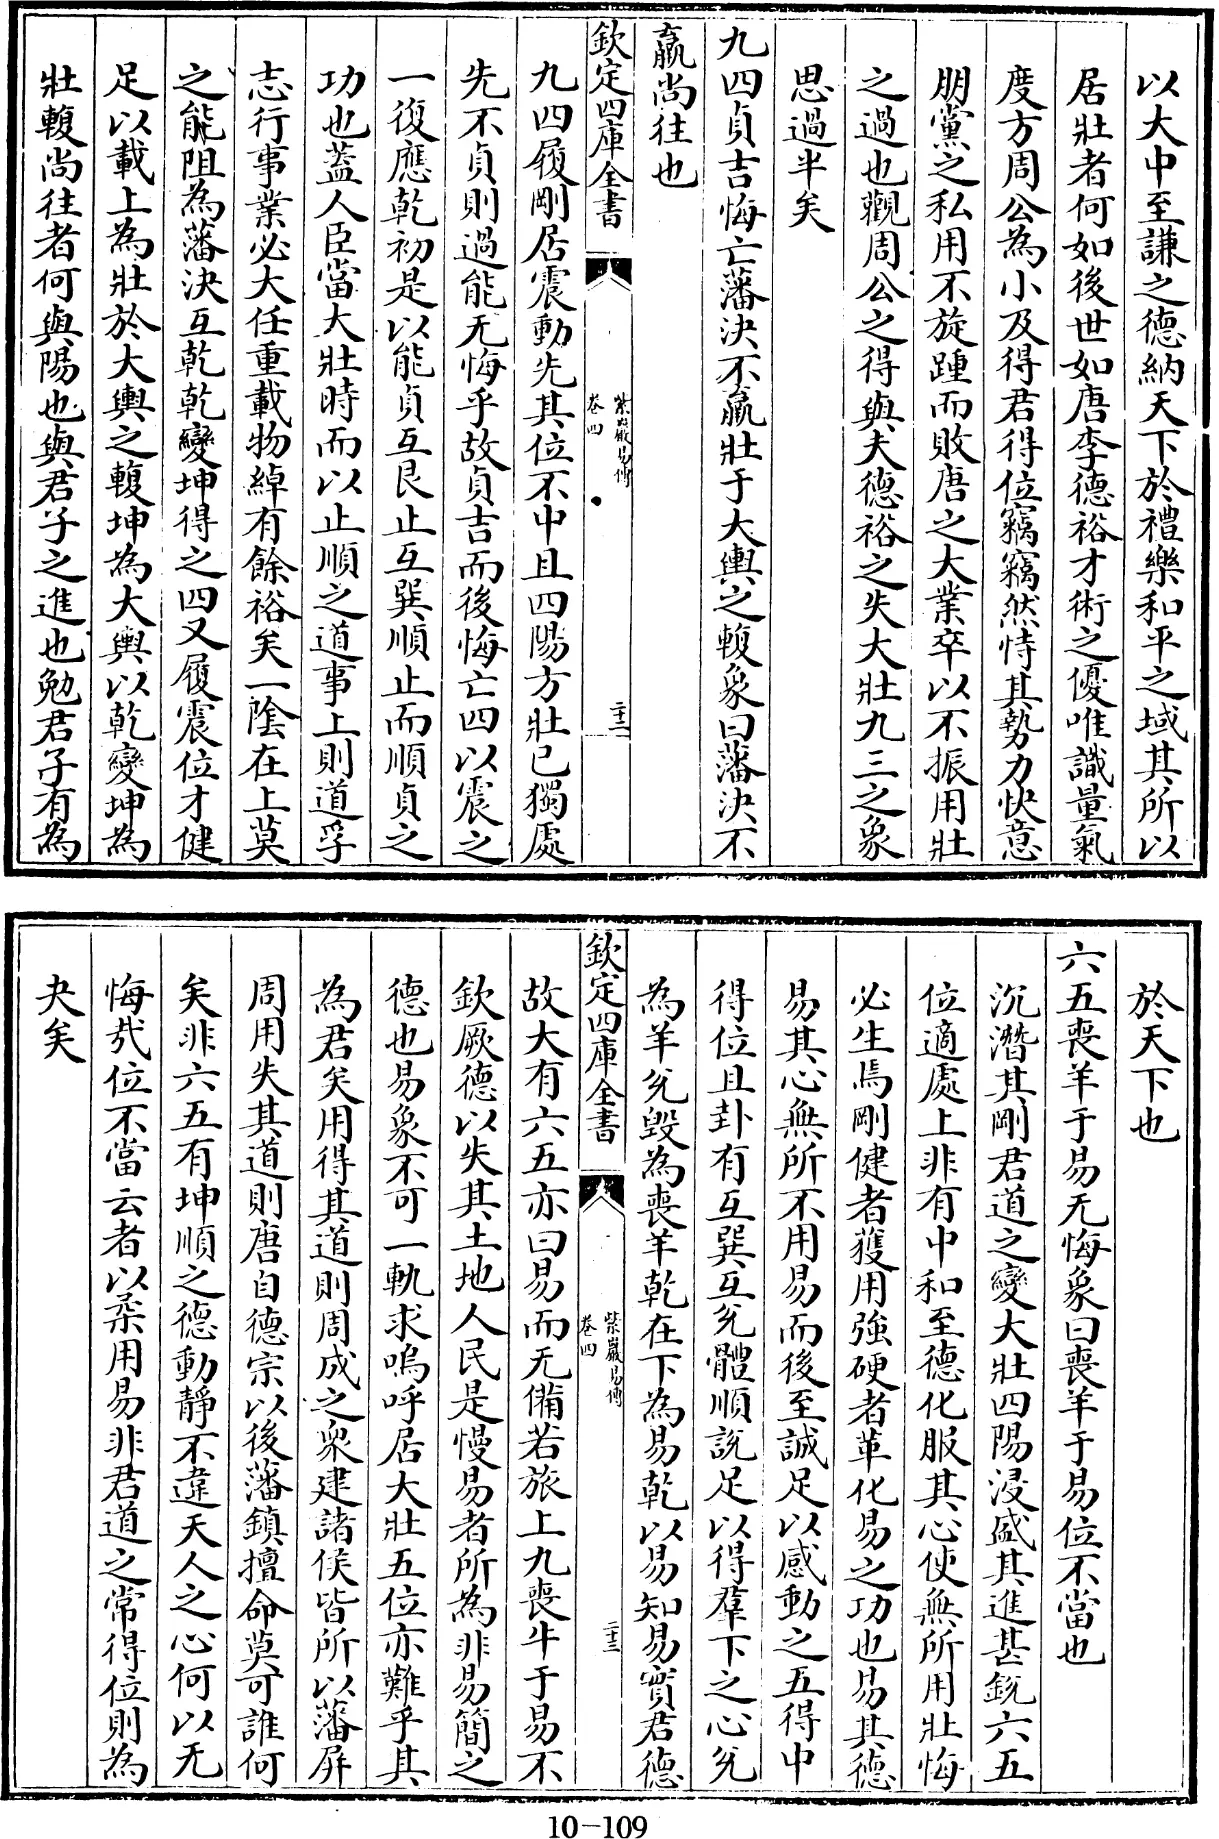 以大中至謙之德納天下於禮樂和平之域其所以
居壯者何如後世如唐李德裕才術之優唯識量氣
度方周公為小及得君得位竊竊然恃其勢力快意
朋黨之私用不旋踵而敗唐之大業卒以不振用壯
之過也觀周公之得與夫德裕之失大壯九三之象
思過半矣
九四貞吉悔亡藩決不羸壯于大輿之輹象曰藩決不
羸尚往也
欽定四庫全書
紫巖易傳
卷四
二十二
九四履剛居震動先其位不中且四陽方壯已獨處
先不貞則過能无悔乎故貞吉而後悔亡四以震之
一復應乾初是以能貞互艮止互巽順止而順貞之
功也蓋人臣當大壯時而以止順之道事上則道孚
志行事業必大任重載物綽有餘裕矣一陰在上莫
之能阻為藩決互乾乾變坤得之四又履震位才健
足以載上為壯於大輿之輹坤為大輿以乾變坤為
壯輹尚往者何與陽也與君子之進也勉君子有為
於天下也
六五喪羊于易无悔象曰喪羊于易位不當也
沉潛其剛君道之變大壯四陽浸盛其進甚銳六五
位適處上非有中和至德化服其心使無所用壯悔
必生焉剛健者獲用強硬者革化易之功也易其德
易其心無所不用易而後至誠足以感動之五得中
得位且卦有互巽互兌體順說足以得羣下之心兌
為羊兌毀為喪羊乾在下為易乾以易知易實君德
欽定四庫全書
紫巖易傳
卷四
二十三
故大有六五亦曰易而无備若旅上九喪牛于易不
欽厥德以失其土地人民是慢易者所為非易簡之
德也易象不可一軌求嗚呼居大壯五位亦難乎其
為君矣用得其道則周成之衆建諸侯皆所以藩屏
周用失其道則唐自德宗以後藩鎮擅命莫可誰何
矣非六五有坤順之德動靜不違天人之心何以无
悔哉位不當云者以柔用易非君道之常得位則為
夬矣
10-109